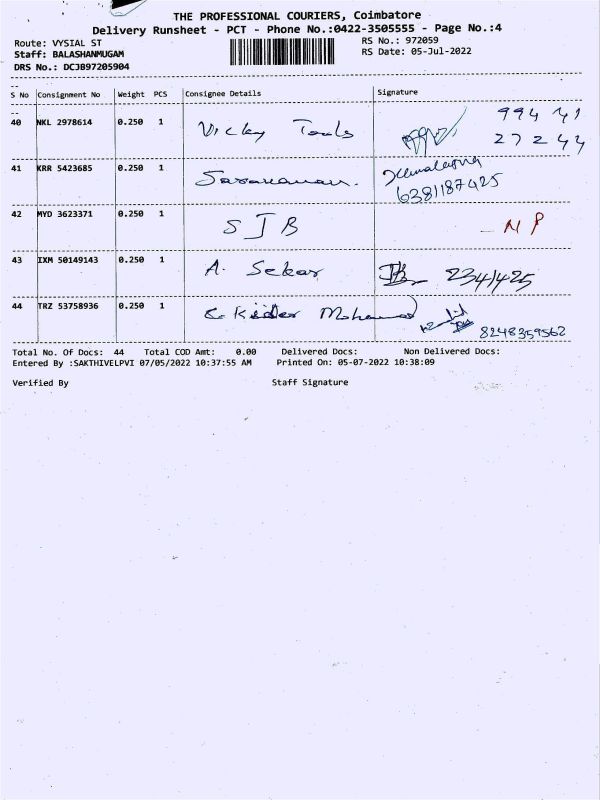 THE PROFESSIONAL COURIERS, Coimbatore
Delivery Runsheet - PCT - Phone No.:0422-3505555 - Page No.:4
Route: VYSIAL ST
RS No.: 972059
Staff: BALASHANMUGAM
RS Date: 05-Jul-2022
DRS No.: DCJB97205904
S No Consignment No Weight PCS Consignee Details Signature
40 NKL 2978614 0.250 1 Vicky Tools 994 41
27244
41 KRR 5423685 0.250 1 Saravanan. 6381187425
42 MYD 3623371 0.250 1 SJB - NP
43 IXM 50149143 0.250 1 A. Sekar 2341425
44 TRZ 53758936 0.250 1 Kider Mohamed 8248359562
Total No. Of Docs: 44 Total COD Amt: 0.00 Delivered Docs: Non Delivered Docs:
Entered By :SAKTHIVELPVI 07/05/2022 10:37:55 AM Printed On: 05-07-2022 10:38:09
Verified By Staff Signature